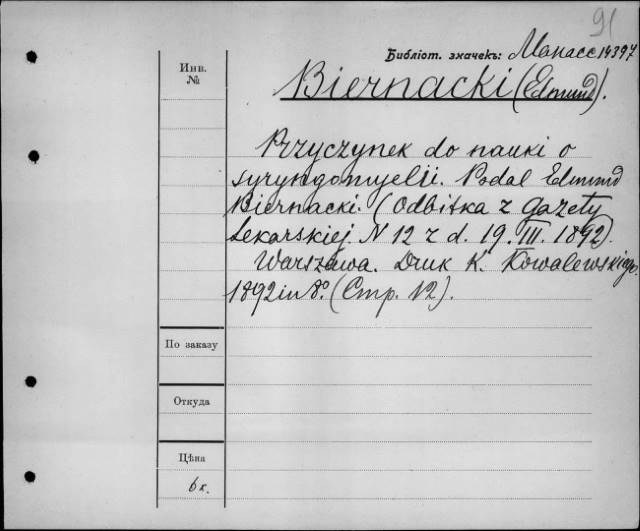 91
Библіот. значекъ: Манассе 14397
Инв. №
Biernacki (Edmund).
Przyczynek do nauki o
syryngomyelii. Podal Edmund
Biernacki. (Odbitka z Gazety
Lekarskiej N 12 z d. 19. III. 1892).
Warszawa. Druk K. Kowalewskiego.
1892 in 8º. (Стр. 12).
По заказу
Откуда
Цѣна
6 к.